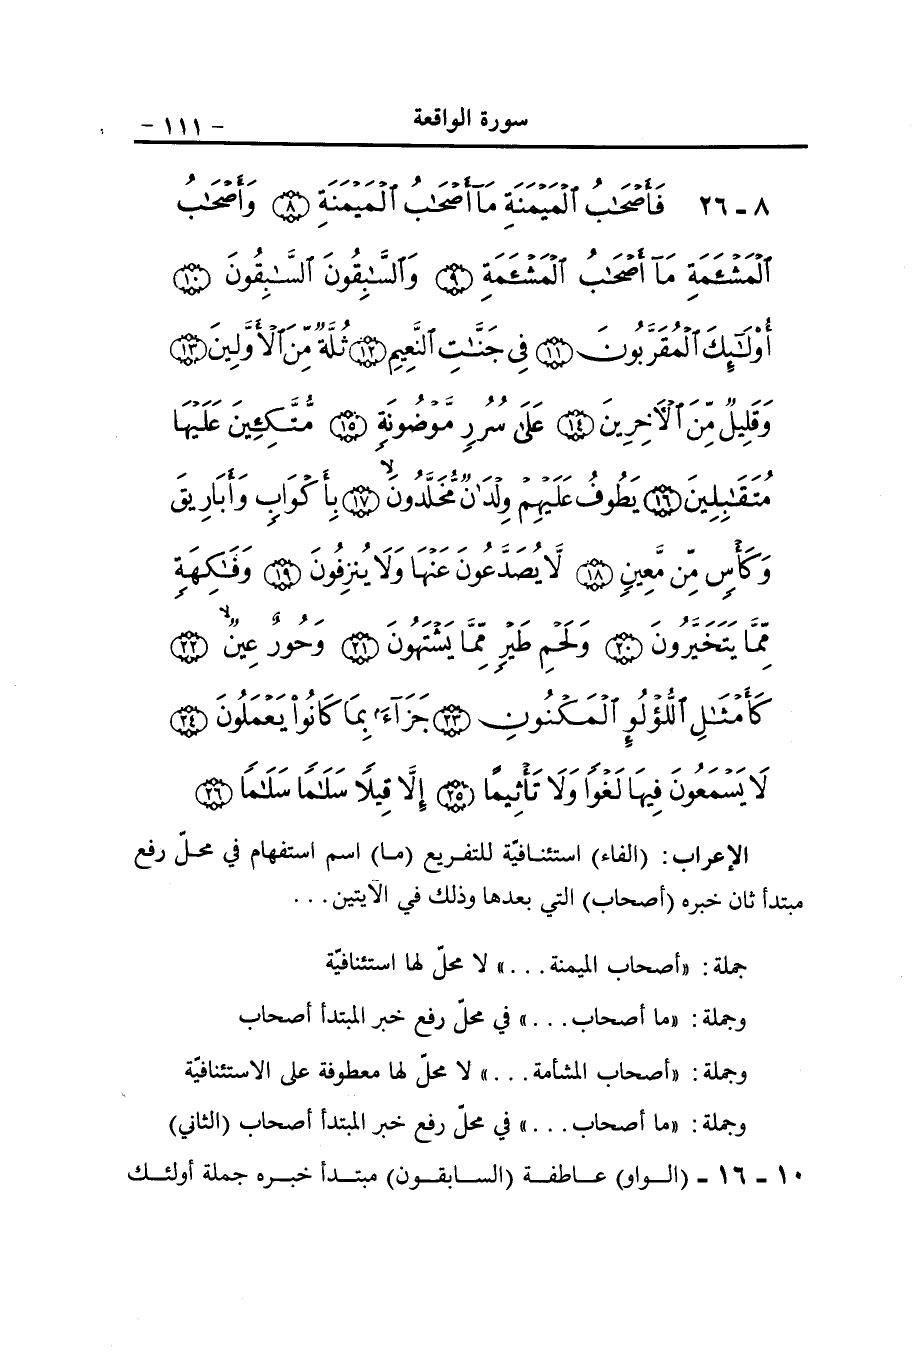 سورة الواقعة - ١١١ -
٨ - ٢٦ فَأَصْحَٰبُ ٱلْمَيْمَنَةِ مَآ أَصْحَٰبُ ٱلْمَيْمَنَةِ ﴿٨﴾ وَأَصْحَٰبُ
ٱلْمَشْـَٔمَةِ مَآ أَصْحَٰبُ ٱلْمَشْـَٔمَةِ ﴿٩﴾ وَٱلسَّٰبِقُونَ ٱلسَّٰبِقُونَ ﴿١٠﴾
أُوْلَٰٓئِكَ ٱلْمُقَرَّبُونَ ﴿١١﴾ فِى جَنَّٰتِ ٱلنَّعِيمِ ﴿١٢﴾ ثُلَّةٌ مِّنَ ٱلْأَوَّلِينَ ﴿١٣﴾
وَقَلِيلٌ مِّنَ ٱلْأَخِرِينَ ﴿١٤﴾ عَلَىٰ سُرُرٍ مَّوْضُونَةٍ ﴿١٥﴾ مُّتَّكِـِٔينَ عَلَيْهَا
مُتَقَٰبِلِينَ ﴿١٦﴾ يَطُوفُ عَلَيْهِمْ وِلْدَٰنٌ مُّخَلَّدُونَ ﴿١٧﴾ بِأَكْوَابٍ وَأَبَارِيقَ
وَكَأْسٍ مِّن مَّعِينٍ ﴿١٨﴾ لَّا يُصَدَّعُونَ عَنْهَا وَلَا يُنزِفُونَ ﴿١٩﴾ وَفَٰكِهَةٍ
مِّمَّا يَتَخَيَّرُونَ ﴿٢٠﴾ وَلَحْمِ طَيْرٍ مِّمَّا يَشْتَهُونَ ﴿٢١﴾ وَحُورٌ عِينٌ ﴿٢٢﴾
كَأَمْثَٰلِ ٱللُّؤْلُوِٕ ٱلْمَكْنُونِ ﴿٢٣﴾ جَزَآءًۢ بِمَا كَانُوا۟ يَعْمَلُونَ ﴿٢٤﴾
لَا يَسْمَعُونَ فِيهَا لَغْوًا وَلَا تَأْثِيمًا ﴿٢٥﴾ إِلَّا قِيلًا سَلَٰمًا سَلَٰمًا ﴿٢٦﴾
الإعراب: (الفاء) استئنافيّة للتفريع (ما) اسم استفهام في محلّ رفع
مبتدأ ثان خبره (أصحاب) التي بعدها وذلك في الآيتين...
جملة: «أصحاب الميمنة...» لا محلّ لها استئنافيّة
وجملة: «ما أصحاب...» في محلّ رفع خبر المبتدأ أصحاب
وجملة: «أصحاب المشأمة...» لا محلّ لها معطوفة على الاستئنافيّة
وجملة: «ما أصحاب...» في محلّ رفع خبر المبتدأ أصحاب (الثاني)
١٠ - ١٦ - (الواو) عاطفة (السابقون) مبتدأ خبره جملة أولئك